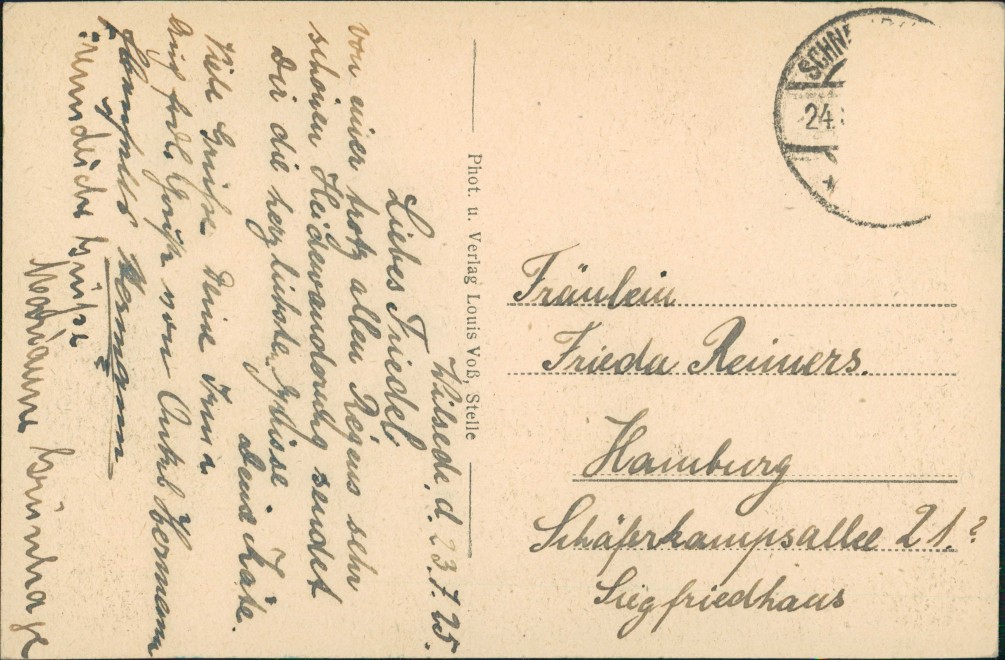 Wilsede, d. 23.7.25.
Liebes Friedel!
Von einer trotz allen Regens sehr
schönen Heidewanderung sendet
Dir die herzlichste Grüsse
Deine Käte.
Viele Grüße Deine
Onkel Hermann
Hermann
Freundliche Grüße
Marianne
Phot. u. Verlag Louis Voß, Stelle
SCHNE
24.
Fräulein
Frieda Reimers.
Hamburg
Schäferkampsallee 21.?
Siegfriedhaus